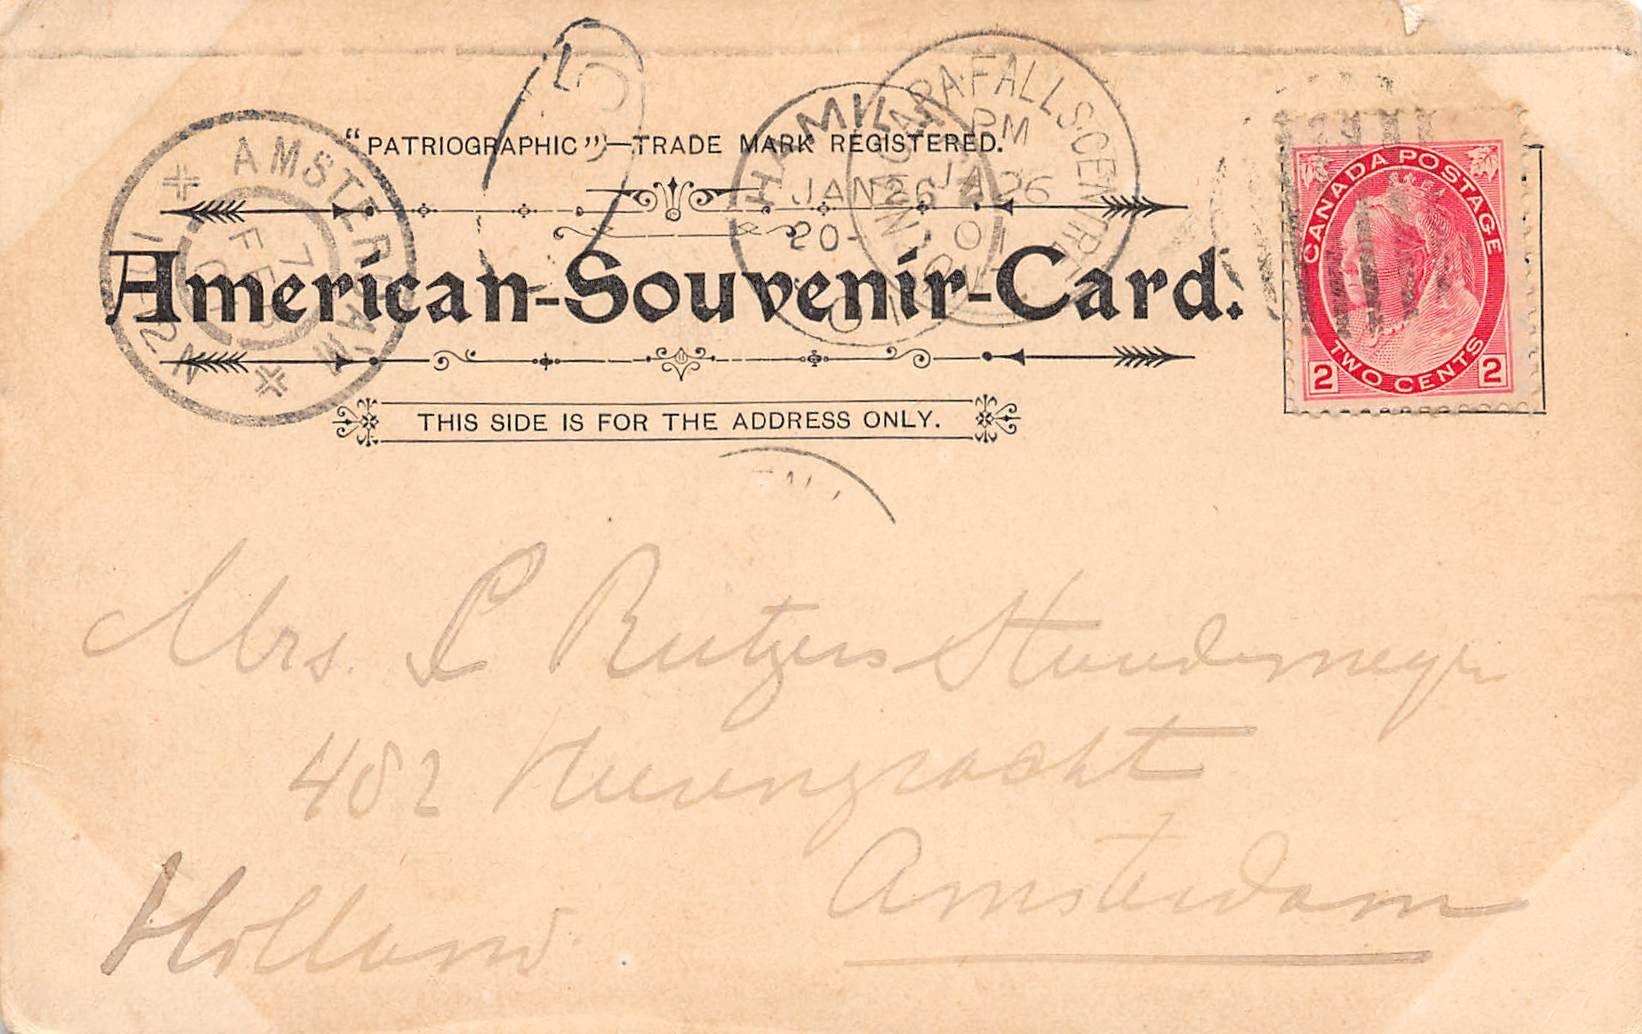 "PATRIOGRAPHIC"—TRADE MARK REGISTERED.
American-Souvenir-Card.
THIS SIDE IS FOR THE ADDRESS ONLY.
CANADA POSTAGE
TWO CENTS
2 2
AMSTERDAM
7 FEB
HAMILTON
JAN 26
20-
NIAGARA·FALLS·CENTRE
PM
JA 26
01
ONT
Mrs. L Rutgers
482 Heerengracht
Amsterdam
Holland